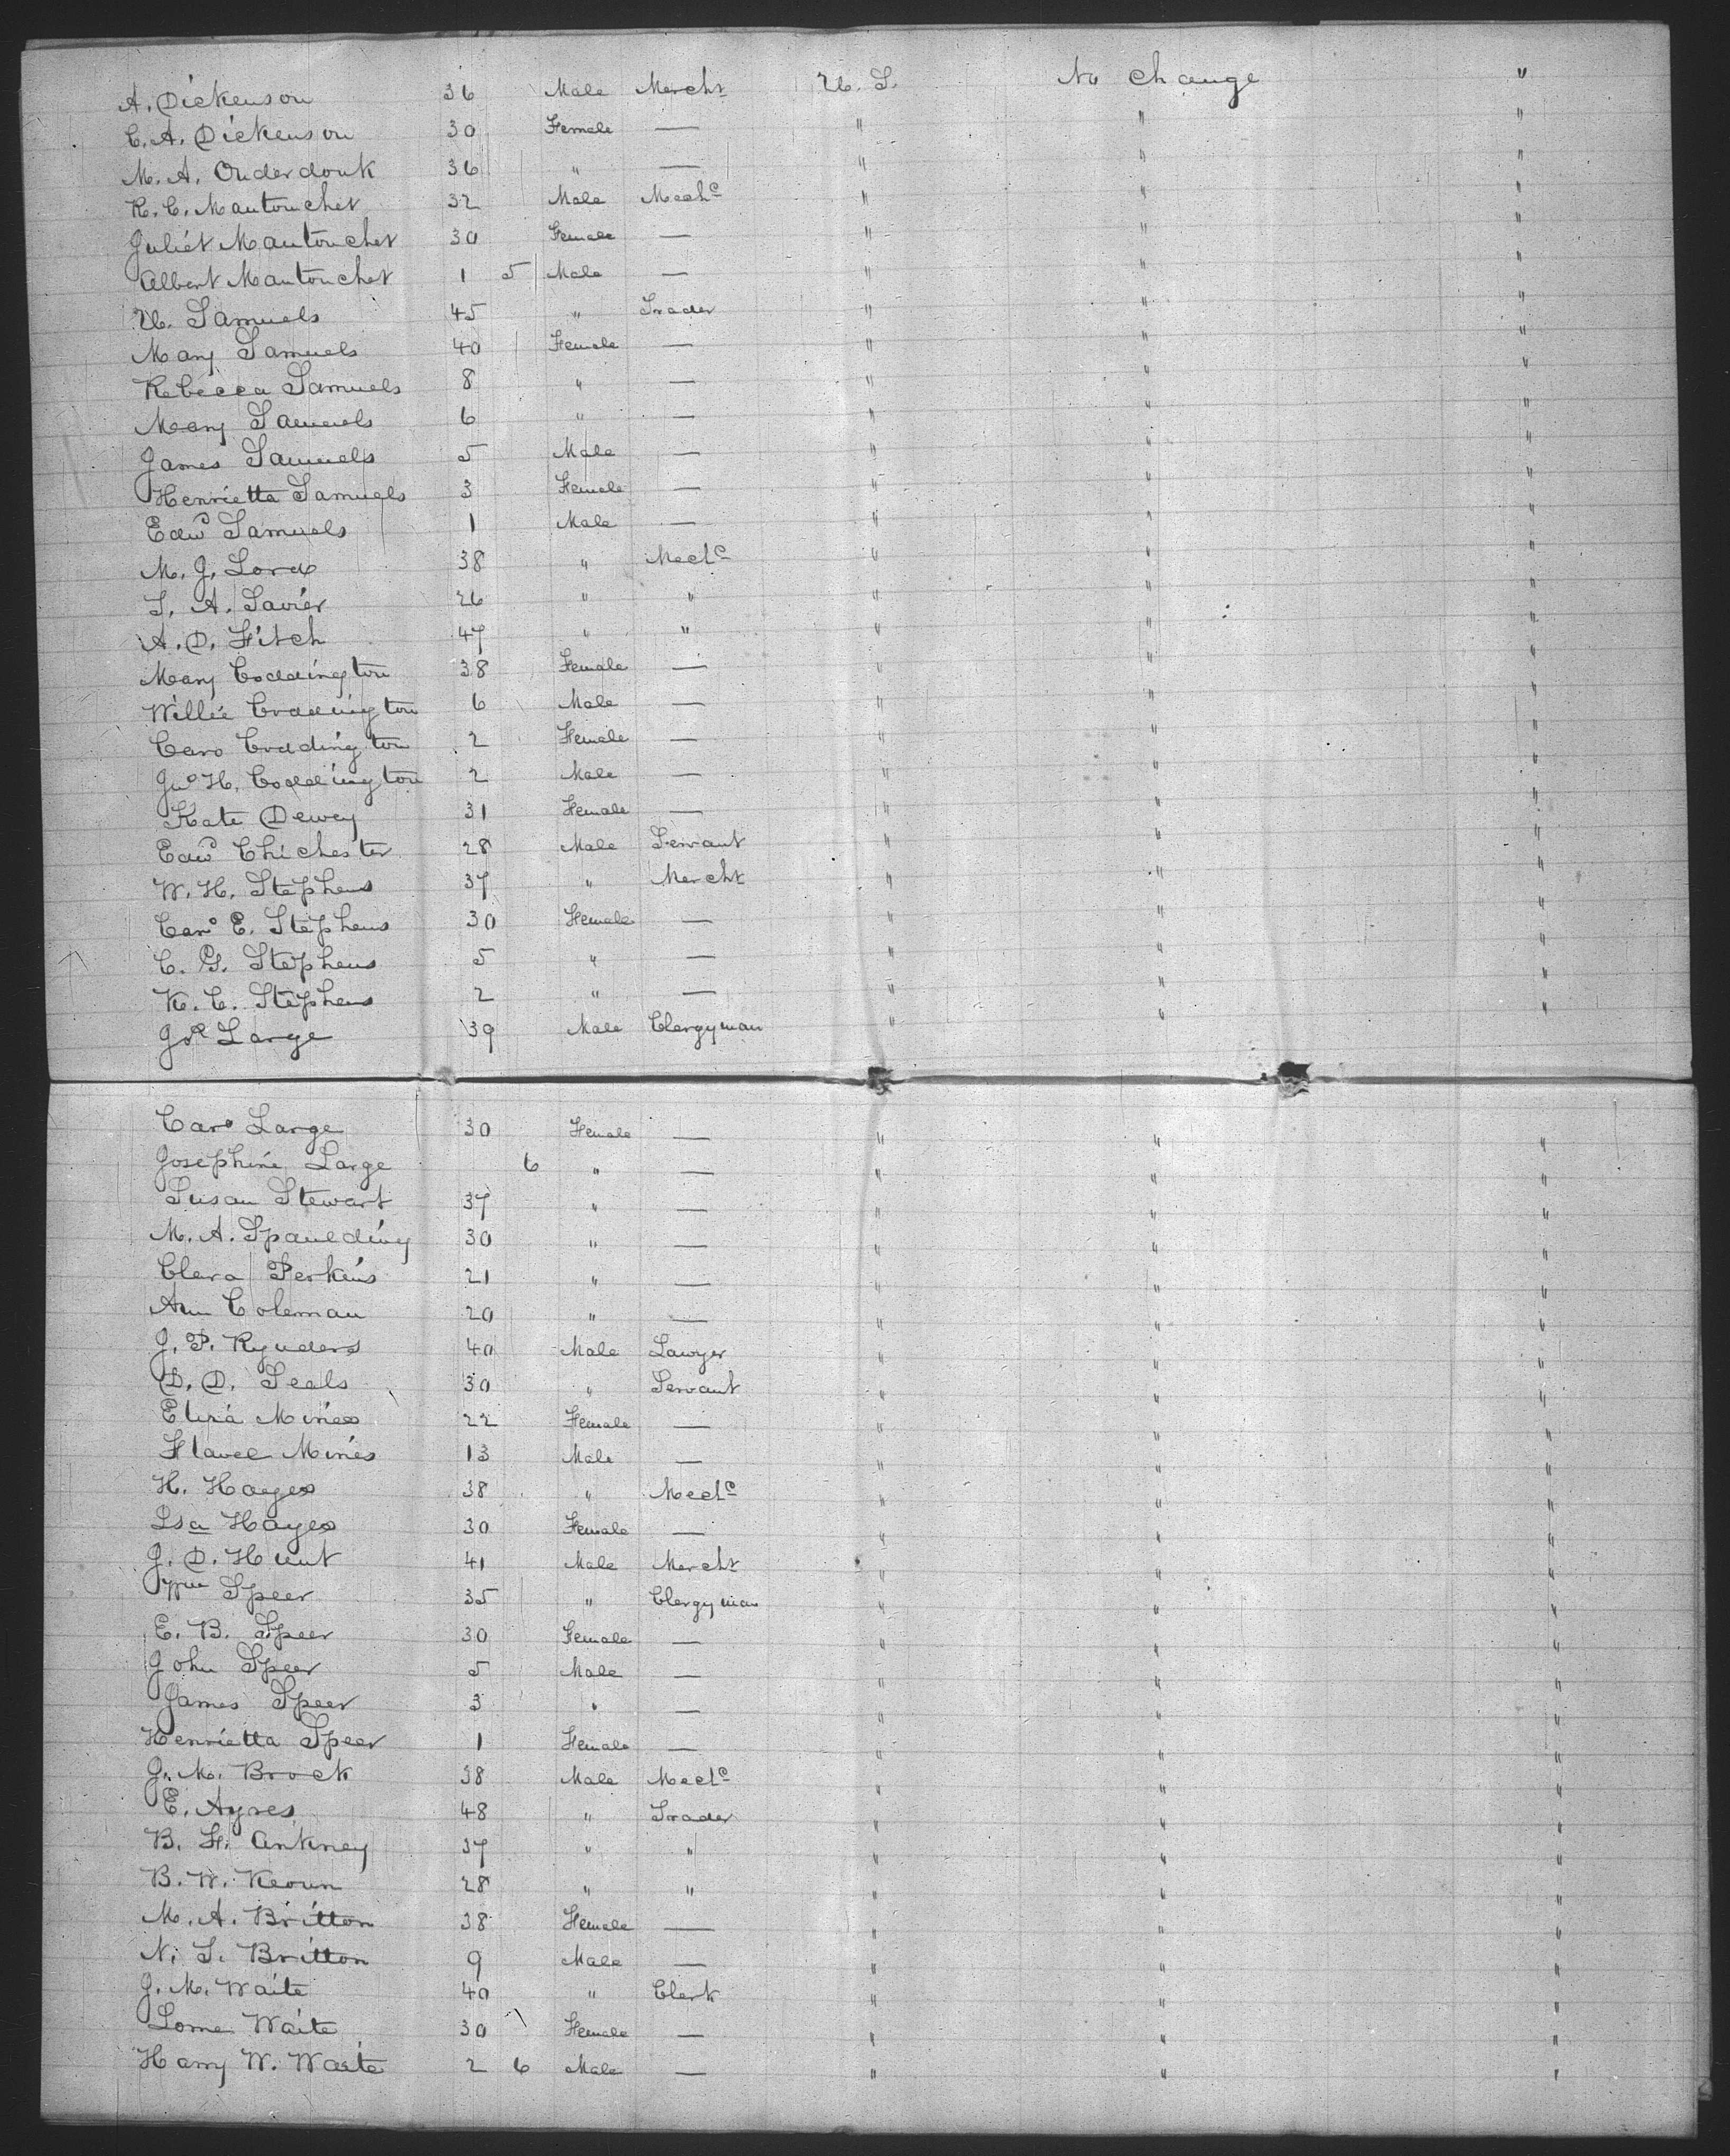 A. Dickenson 36 Male Mercht U. S. No change "
C. A. Dickenson 30 Female — " " "
M. A. Onderdonk 36 " — " " "
R. C. Mantouchet 32 Male Mechc " " "
Juliet Mantouchet 30 Female — " " "
Albert Mantouchet 1 5 Male — " " "
U. Samuels 45 " Trader " " "
Mary Samuels 40 Female — " " "
Rebecca Samuels 8 " — " " "
Mary Samuels 6 " — " " "
James Samuels 5 Male — " " "
Henrietta Samuels 3 Female — " " "
Edwd Samuels 1 Male — " " "
M. J. Lord 38 " Mechc " " "
T. A. Savier 26 " " " " "
A. D. Fitch 47 " " " " "
Mary Coddington 38 Female — " " "
Willie Coddington 6 Male — " " "
Caro Coddington 2 Female — " " "
Jno H. Coddington 2 Male — " " "
Kate Dewey 31 Female — " " "
Edwd Chichester 28 Male Servant " " "
W. H. Stephens 37 " Mercht " " "
Caro E. Stephens 30 Female — " " "
C. G. Stephens 5 " — " " "
K. C. Stephens 2 " — " " "
Large 39 Male Clergyman " " "
Caro Large 30 Female — " " "
Josephine Large 6 " — " " "
Susan Stewart 37 " — " " "
M. A. Spaulding 30 " — " " "
Clara Perkins 21 " — " " "
Ann Coleman 20 " — " " "
J. P. Rynders 40 Male Lawyer " " "
D. D. Seals 30 " Servant " " "
Eliza Mines 22 Female — " " "
Flavel Mines 13 Male — " " "
H. Hayes 38 " Mechc " " "
Isa Hayes 30 Female — " " "
J. D. Hunt 41 Male Mercht " " "
Wm Speer 35 " Clergyman " " "
E. B. Speer 30 Female — " " "
John Speer 5 Male — " " "
James Speer 3 " — " " "
Henrietta Speer 1 Female — " " "
J. M. Brock 38 Male Mechc " " "
E. Ayres 48 " Trader " " "
B. F. Ankney 37 " " " " "
B. W. Keoun 28 " " " " "
M. A. Britton 38 Female — " " "
N. S. Britton 9 Male — " " "
J. M. Waite 40 " Clerk " " "
Waite 30 Female — " " "
Harry W. Waite 2 6 Male — " " "